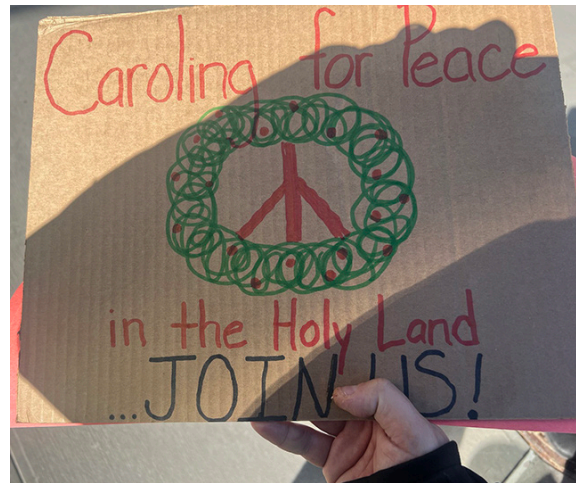 Caroling for Peace
in the Holy Land
...JOIN US!